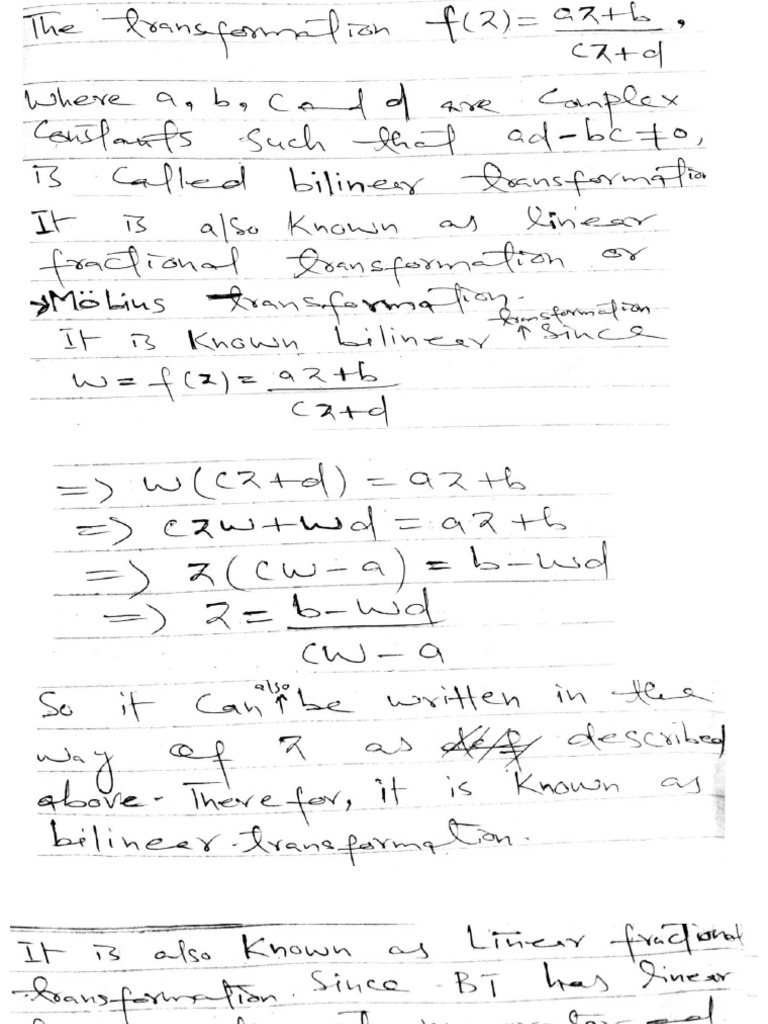 The transformation f(z) = az+b / cz+d ,
Where a, b, c and d are complex
Constants such that ad-bc≠0,
is called bilinear transformation
It is also known as linear
fractional transformation or
Möbius transformation.
It is known bilinear transformation since
w = f(z) = az+b / cz+d
=> w(cz+d) = az+b
=> czw+wd = az+b
=> z(cw-a) = b-wd
=> z = b-wd / cw-a
So it can also be written in the
way of z as described
above. Therefor, it is known as
bilinear transformation.
It is also known as Linear fractional
transformation. Since BT has linear